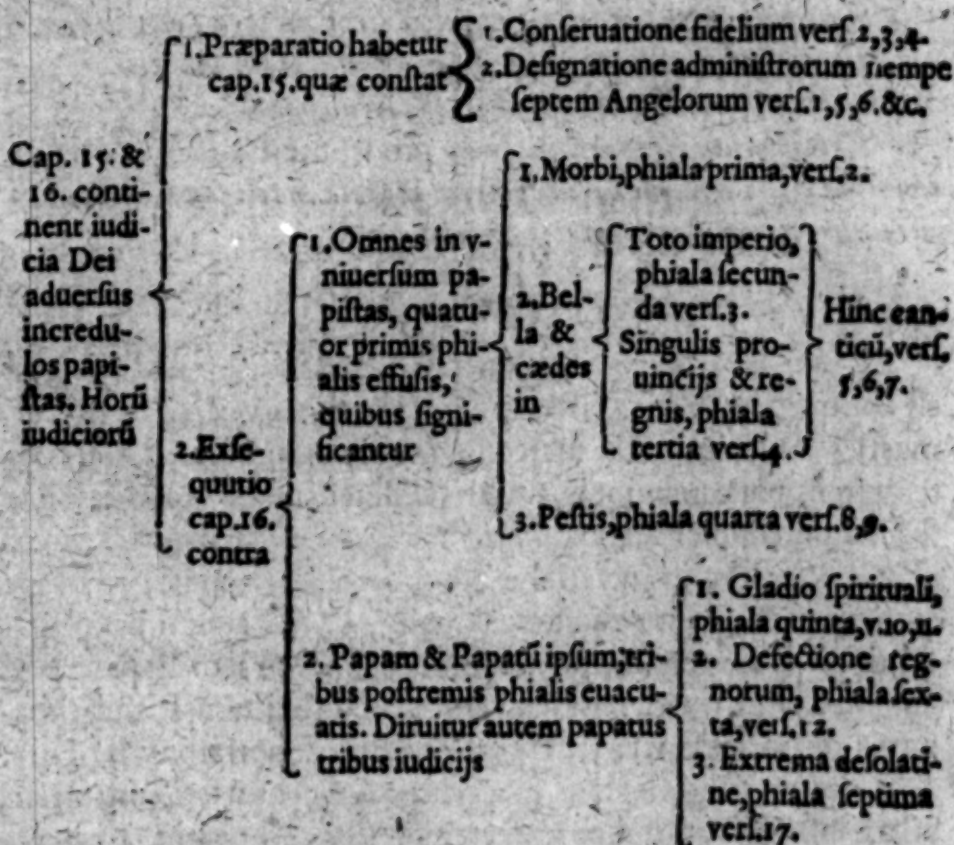 Cap. 15. &
16. conti-
nent iudi-
cia Dei
aduerſus
incredu-
los papi-
ſtas. Horũ
iudiciorũ
1. Præparatio habetur
cap. 15. quæ conſtat
1. Conſeruatione fidelium verſ. 2,3,4.
2. Deſignatione adminiſtrorum nempe
ſeptem Angelorum verſ. 1,5,6. &c.
2. Exſe-
quutio
cap. 16.
contra
1. Omnes in v-
niuerſum pa-
piſtas, quatu-
or primis phi-
alis effuſis,
quibus ſigni-
ficantur
1. Morbi, phiala prima, verſ. 2.
2. Bel-
la &
cædes
in
Toto imperio,
phiala ſecun-
da verſ. 3.
Singulis pro-
uincijs & re-
gnis, phiala
tertia verſ. 4.
Hinc can-
ticũ, verſ.
5,6,7.
3. Peſtis, phiala quarta verſ. 8,9.
2. Papam & Papatũ ipſum, tri-
bus poſtremis phialis euacu-
atis. Diruitur autem papatus
tribus iudicijs
1. Gladio ſpirituali,
phiala quinta, v. 10, 11.
2. Defectione reg-
norum, phiala ſex-
ta, verſ. 12.
3. Extrema deſolati-
ne, phiala ſeptima
verſ. 17.